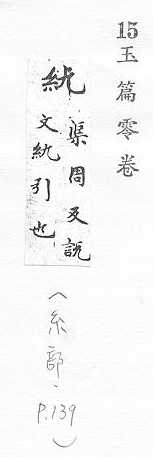 15玉篇零卷
紌
渠周反說
文紌引也
（糸部、P.139）